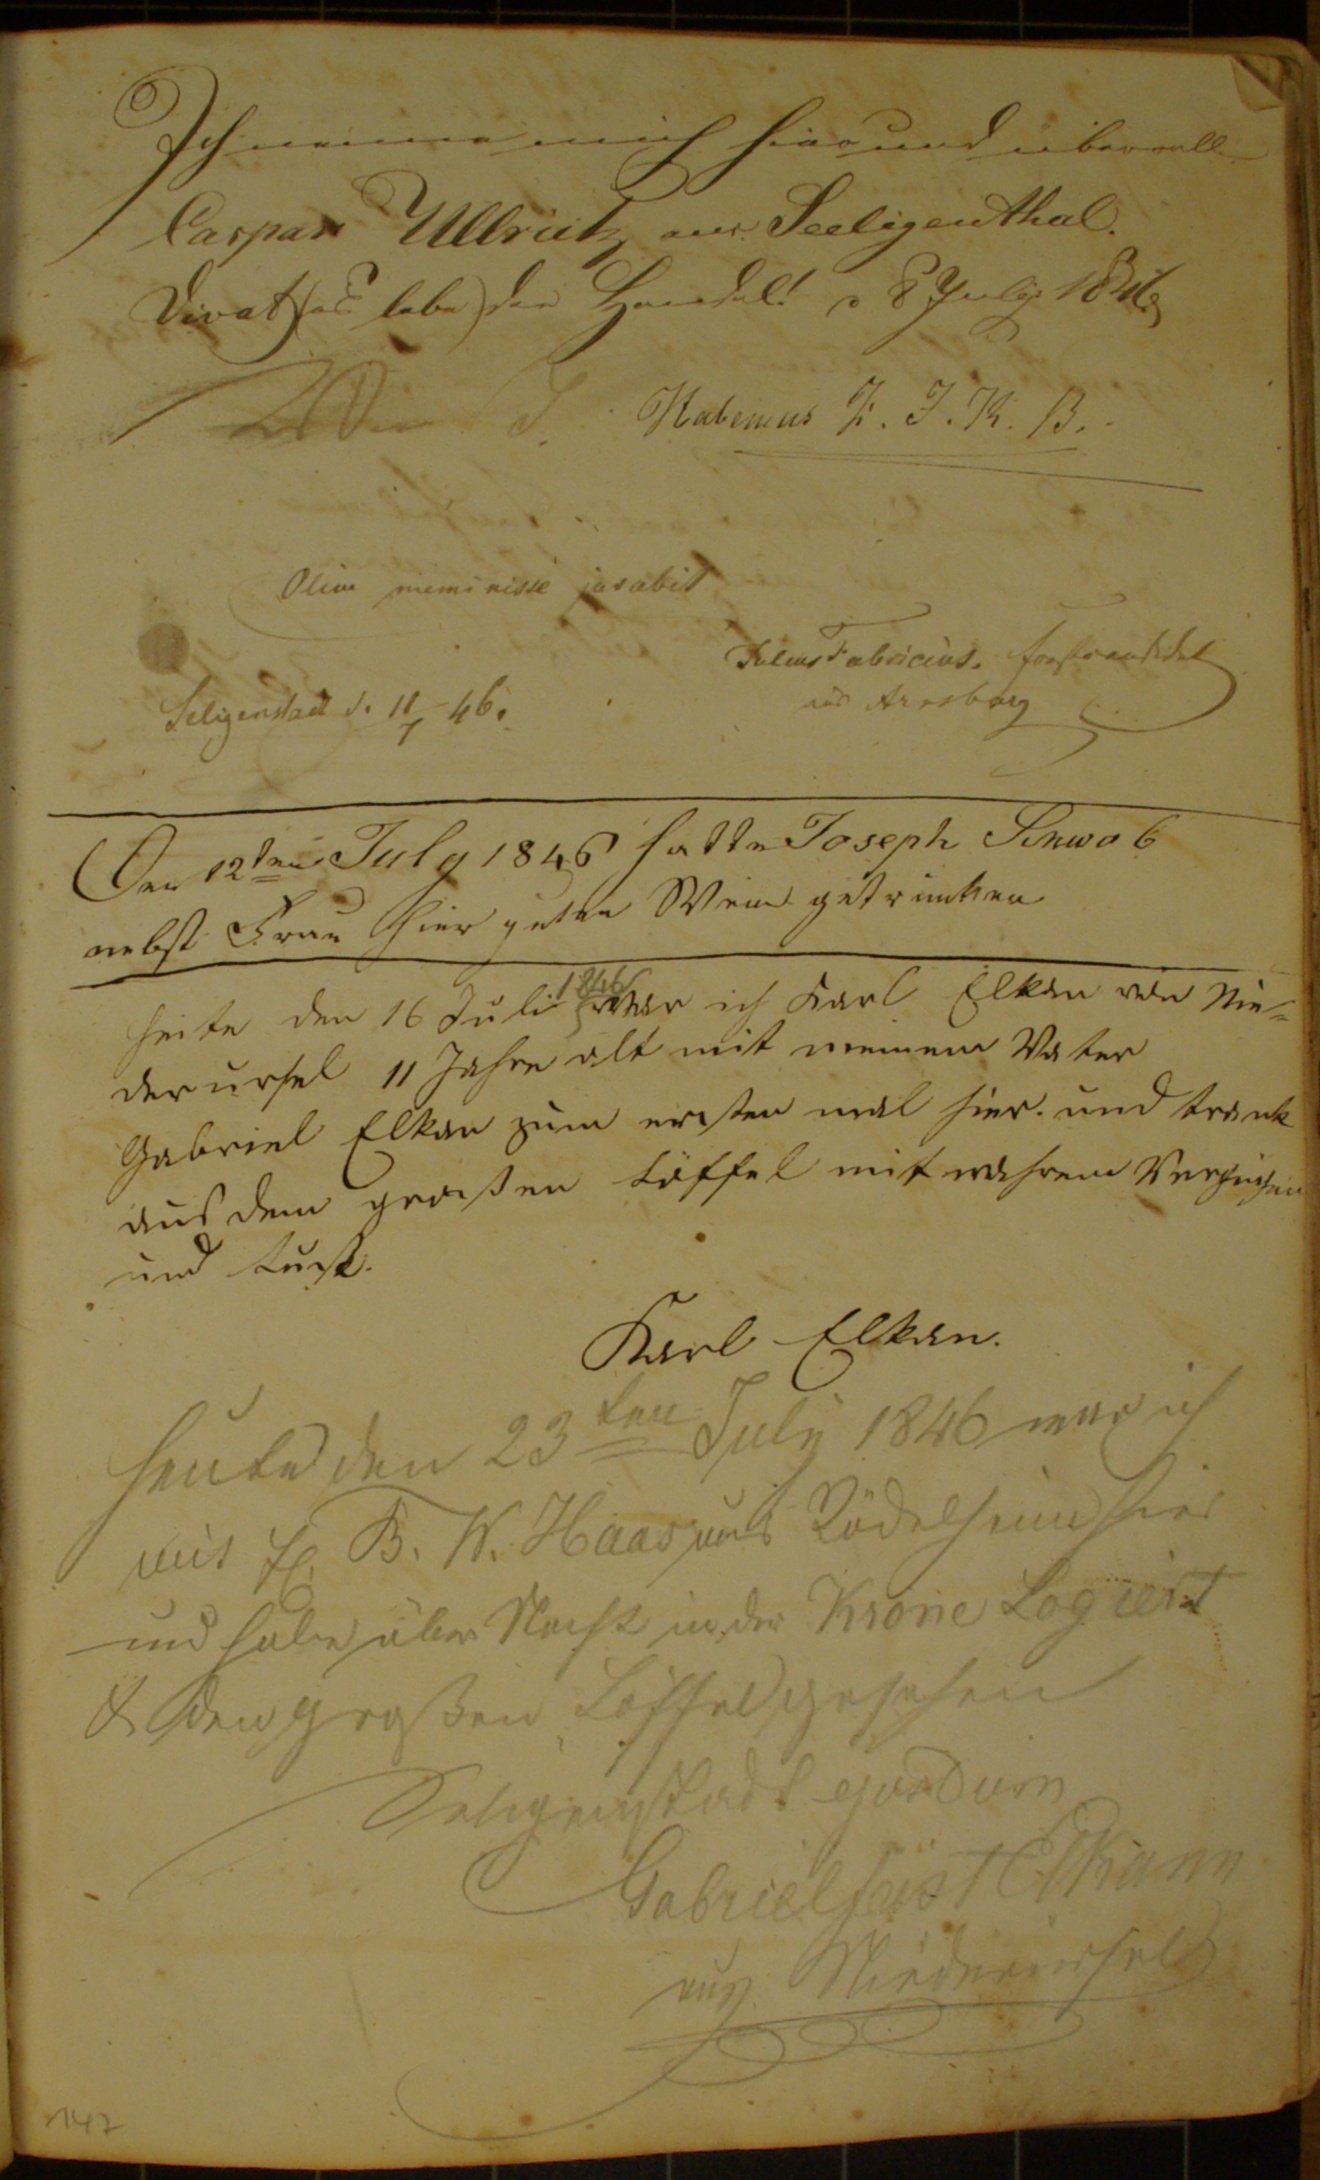 Ich nenne mich hier und überall
Caspar Ullrich aus Seeligenthal.
Vivat (es lebe) der Handel! 8 July 1846
Habemus F. J. K. B.
Olim meminisse juvabit
Julius Fabricius. Forstcandidat
aus Arnsburg
Seligenstadt d. 11/7 46.
Den 12ten July 1846 hatte Joseph Schwab
nebst Frau hier guten Wein getrunken
Heite den 16 Juli 1846 war ich Karl Elkan von Nie=
derursel 11 Jahre alt mit meinem Vater
Gabriel Elkan zum ersten mal hier. und trank
aus dem großen Löffel mit wahrem Vergnügen
und Lust.
Karl Elkan.
Heute den 23ten July 1846 war ich
mit H. B. W. Haas aus Rödelheim hier
und habe über Nacht in der Krone Logiert
& den großen Löffel gesehen
Seligenstadt
Gabriel Feist Elkann
aus Niederursel
147